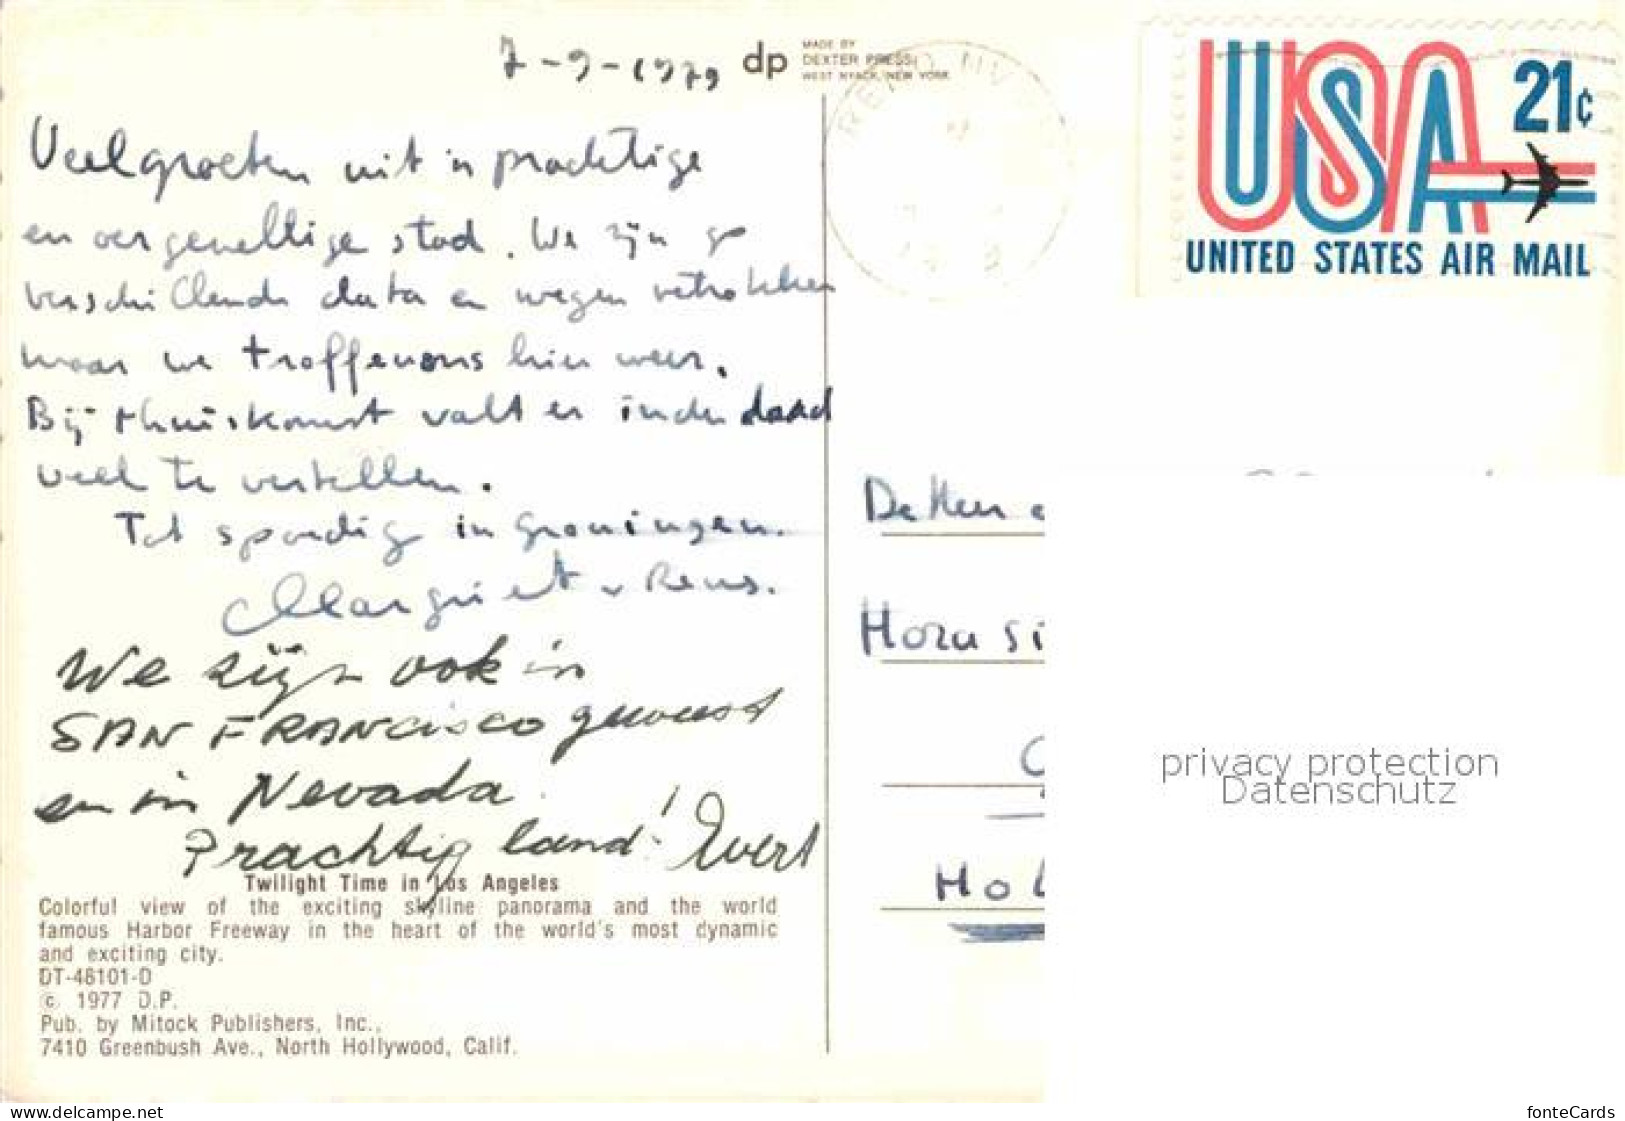 7-9-1979
dp
MADE BY
DEXTER PRESS
WEST NYACK, NEW YORK
RENO NV
USA 21¢
UNITED STATES AIR MAIL
Veel groeten uit 'n prachtige
en overgeweldige stad. We zijn op
verschillende data en wegen vertrokken
maar we troffen ons hier weer.
Bij thuiskomst valt er inderdaad
veel te vertellen.
Tot spoedig in Groningen.
Margriet v Rens.
We zijn ook in
SAN FRANCISCO geweest
en in Nevada.
Prachtig land! Evert
De Heer
Hora si
Hol
privacy protection
Datenschutz
Twilight Time in Los Angeles
Colorful view of the exciting skyline panorama and the world
famous Harbor Freeway in the heart of the world's most dynamic
and exciting city.
DT-48101-D
© 1977 D.P.
Pub. by Mitock Publishers, Inc.,
7410 Greenbush Ave., North Hollywood, Calif.
www.delcampe.net
fonteCards